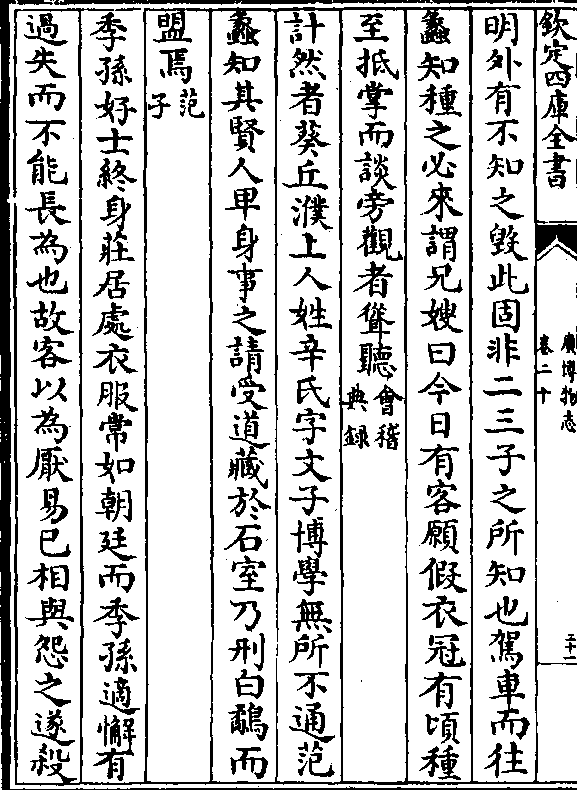 欽定四庫全書
廣博物志
卷二十
二十一
明外有不知之毀此固非二三子之所知也駕車而往
蠡知種之必來謂兄嫂曰今日有客願假衣冠有頃種
至抵掌而談旁觀者聳聽會稽典録
計然者葵丘濮上人姓辛氏字文子博學無所不通范
蠡知其賢人卑身事之請受道藏於石室乃刑白鷸而
盟焉范子
季孫好士終身莊居處衣服常如朝廷而季孫適懈有
過失而不能長為也故客以為厭易已相與怨之遂殺